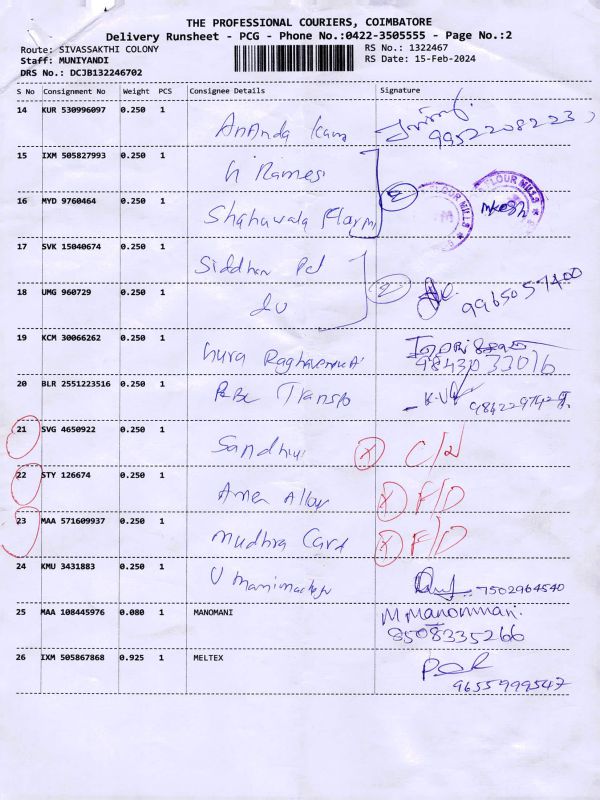 THE PROFESSIONAL COURIERS, COIMBATORE
Delivery Runsheet - PCG - Phone No.:0422-3505555 - Page No.:2
Route: SIVASSAKTHI COLONY RS No.: 1322467
Staff: MUNIYANDI RS Date: 15-Feb-2024
DRS No.: DCJB132246702
S No Consignment No Weight PCS Consignee Details Signature
14 KUR 530996097 0.250 1 Ananda 9952208223
15 IXM 505827993 0.250 1 Ramesi
16 MYD 9760464 0.250 1 Shahuwala FLOUR MILLS
17 SVK 15040674 0.250 1 Siddhan
18 UMG 960729 0.250 1 do 2 9965057400
19 KCM 30066262 0.250 1 9843033016
20 BLR 2551223516 0.250 1 Transpo K.V
21 SVG 4650922 0.250 1 Sandhiya X
22 STY 126674 0.250 1 Amex Alloy X F/D
23 MAA 571609937 0.250 1 Mudhra Card X F/D
24 KMU 3431883 0.250 1 7502964540
25 MAA 108445976 0.080 1 MANOMANI M Manonmani.
8508335266
26 IXM 505867868 0.925 1 MELTEX
9655999547